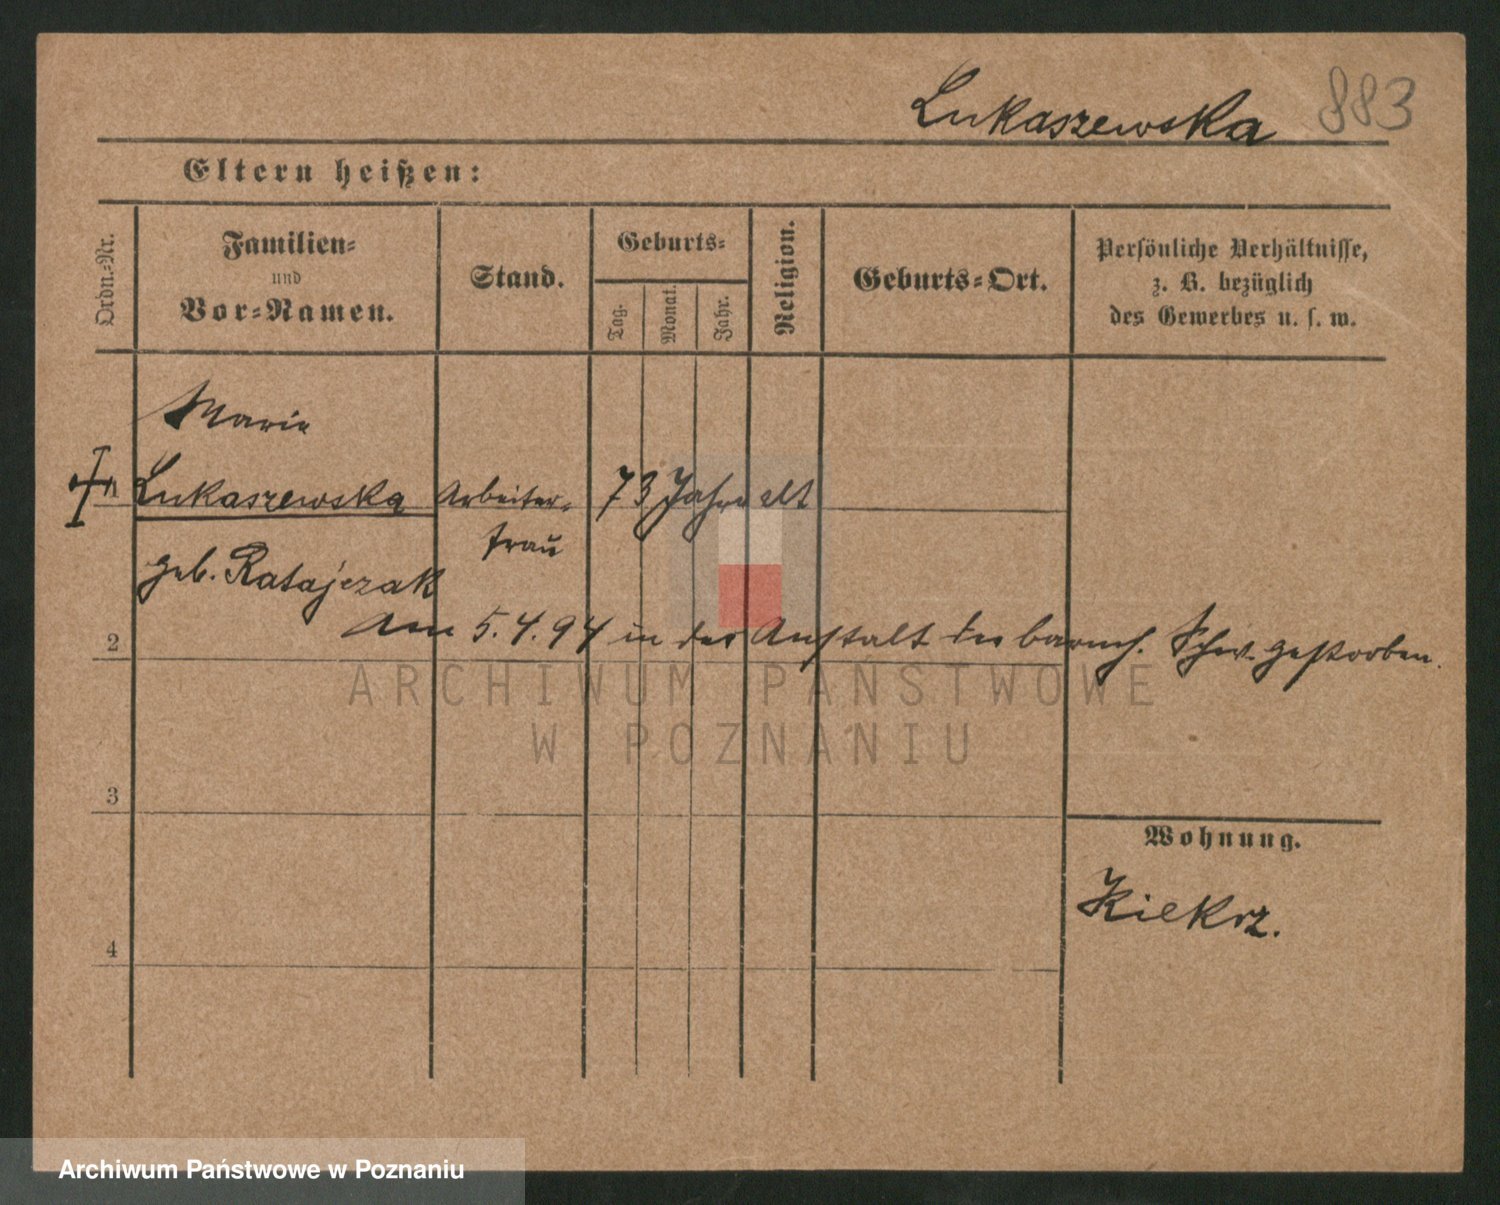 Lukaszewska 883
Eltern heißen:
Ordn.-Nr.
Familien-
und
Vor-Namen.
Stand.
Geburts-
Tag.
Monat.
Jahr.
Religion.
Geburts-Ort.
Persönliche Verhältnisse,
z. B. bezüglich
des Gewerbes u. s. w.
Marie
1 Lukaszewska Arbeiter- 73 Jahre alt
frau
geb. Ratajczak
2 Am 5.4.94 in der Anstalt der barmh. Schw. gestorben.
ARCHIWUM PAŃSTWOWE
W POZNANIU
3
Wohnung.
Kiekrz.
4
Archiwum Państwowe w Poznaniu